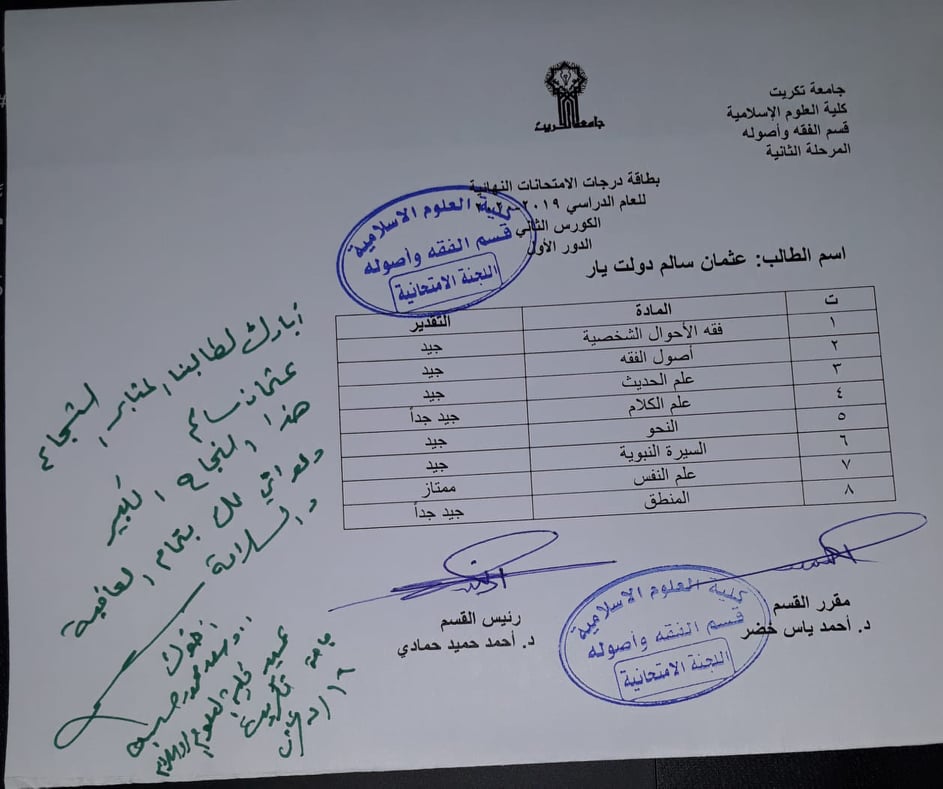 جامعة تكريت
كلية العلوم الإسلامية
قسم الفقه وأصوله
المرحلة الثانية
جامعة تكريت
بطاقة درجات الامتحانات النهائية
للعام الدراسي ٢٠١٩-٢٠٢٠
الكورس الثاني
الدور الأول
كلية العلوم الاسلامية
قسم الفقه وأصوله
اللجنة الامتحانية
اسم الطالب: عثمان سالم دولت يار
ت المادة التقدير
١ فقه الأحوال الشخصية جيد
٢ أصول الفقه جيد
٣ علم الحديث جيد
٤ علم الكلام جيد جداً
٥ النحو جيد
٦ السيرة النبوية جيد
٧ علم النفس ممتاز
٨ المنطق جيد جداً
مقرر القسم
د. أحمد ياس خضر
رئيس القسم
د. أحمد حميد حمادي
كلية العلوم الاسلامية
قسم الفقه وأصوله
اللجنة الامتحانية
أبارك لطالبنا المثابر الشجاع
عثمان سالم
هذا النجاح الكبير
ودعواتي لك بتمام العافية
والسلامة
أخوك
عميد كلية العلوم الإسلامية
جامعة تكريت